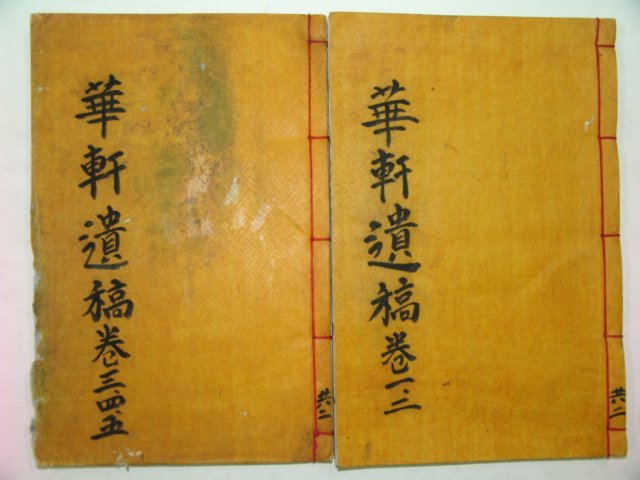 華軒遺稿卷一·二
共二
華軒遺稿卷三·四·五
共二